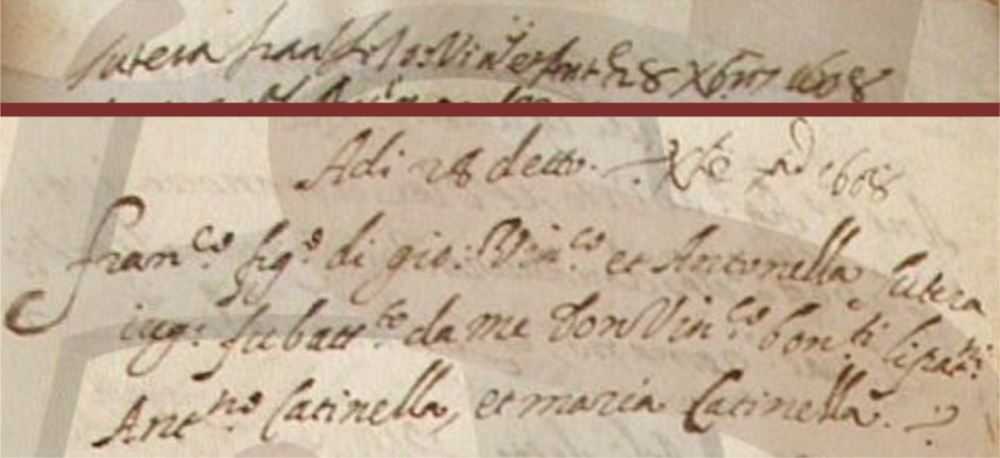 Cutera fran fi: Gio: Vin et Ant 28 Xbre 1608
Adi 28 detto. Xbre 1608
Fran.co fig.o di gio: Vin.co et Antonella Cutera
iug: fu batt.to da me Don Vin.co bon.ti li patrini
Ant.no Catinella, et maria Catinella.